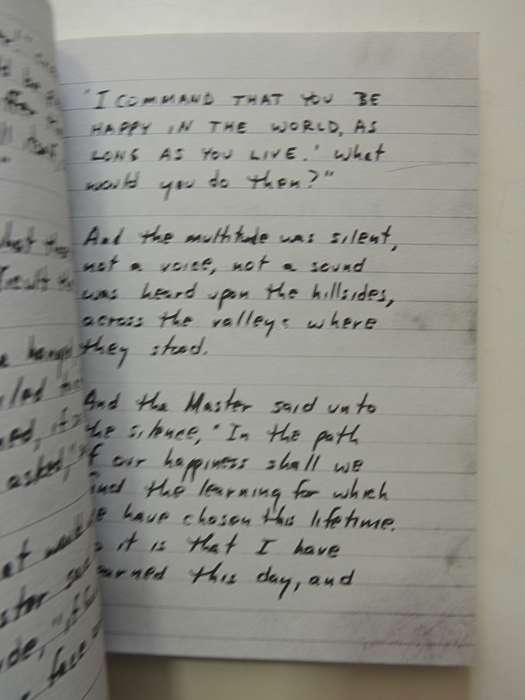 "I COMMAND THAT YOU BE
HAPPY IN THE WORLD, AS
LONG AS YOU LIVE.' What
would you do then?"
And the multitude was silent,
not a voice, not a sound
was heard upon the hillsides,
across the valleys where
they stood.
And the Master said unto
the silence, "In the path
f our happiness shall we
ind the learning for which
e have chosen this lifetime.
o it is that I have
arned this day, and